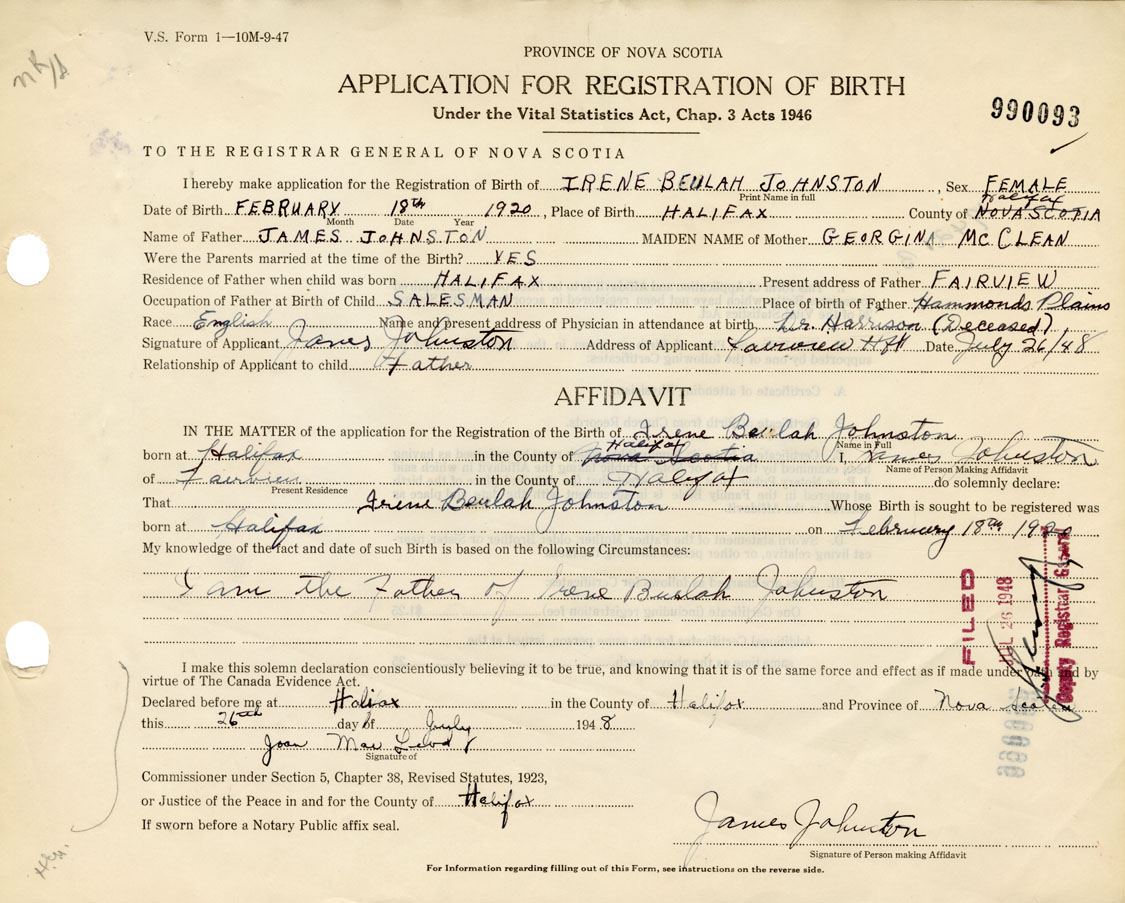 V.S. Form 1—10M-9-47
PROVINCE OF NOVA SCOTIA
APPLICATION FOR REGISTRATION OF BIRTH
Under the Vital Statistics Act, Chap. 3 Acts 1946
990093
TO THE REGISTRAR GENERAL OF NOVA SCOTIA
I hereby make application for the Registration of Birth of IRENE BEULAH JOHNSTON, Sex FEMALE
Print Name in full
Halifax
Date of Birth FEBRUARY 18TH 1920, Place of Birth HALIFAX County of NOVA SCOTIA
Month Date Year
Name of Father JAMES JOHNSTON MAIDEN NAME of Mother GEORGINA MCCLEAN
Were the Parents married at the time of the Birth? YES
Residence of Father when child was born HALIFAX Present address of Father FAIRVIEW
Occupation of Father at Birth of Child SALESMAN Place of birth of Father Hammonds Plains
Race English Name and present address of Physician in attendance at birth Dr. Harrison (Deceased)
Signature of Applicant James Johnston Address of Applicant Fairview Date July 26/48
Relationship of Applicant to child Father
AFFIDAVIT
IN THE MATTER of the application for the Registration of the Birth of Irene Beulah Johnston
Name in Full
Halifax
born at Halifax in the County of Nova Scotia I, James Johnston
Name of Person Making Affidavit
of Fairview in the County of Halifax do solemnly declare:
Present Residence
That Irene Beulah Johnston Whose Birth is sought to be registered was
born at Halifax on February 18th 1920
My knowledge of the fact and date of such Birth is based on the following Circumstances:
I am the Father of Irene Beulah Johnston
FILED
JUL 26 1948
Deputy Registrar General
I make this solemn declaration conscientiously believing it to be true, and knowing that it is of the same force and effect as if made under oath and by
virtue of The Canada Evidence Act.
Declared before me at Halifax in the County of Halifax and Province of Nova Scotia
this 26th day of July 1948
Joan Mac
Signature of
Commissioner under Section 5, Chapter 38, Revised Statutes, 1923,
or Justice of the Peace in and for the County of Halifax
If sworn before a Notary Public affix seal.
James Johnston
Signature of Person making Affidavit
For Information regarding filling out of this Form, see instructions on the reverse side.